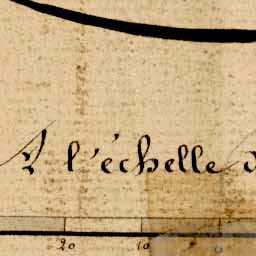 A l'échelle
20 10 0